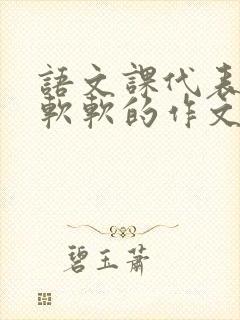 語文課代表
軟軟的作文
碧玉蕭